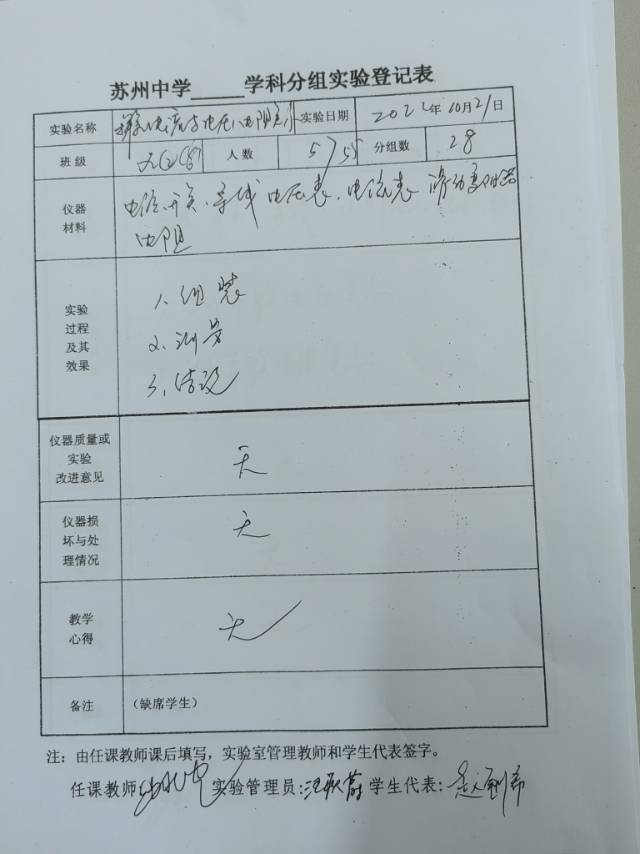 苏州中学_____学科分组实验登记表
实验名称 探究电流与电压、电阻关系 实验日期 2022年10月21日
班级 九(2)(8) 人数 57 55 分组数 28
仪器材料 电源、开关、导线 电压表、电流表 滑动变阻器
电阻
实验过程及其效果 1、组装
2、测量
3、结论
仪器质量或实验改进意见 无
仪器损坏与处理情况 无
教学心得 无
备注 (缺席学生)
注：由任课教师课后填写，实验室管理教师和学生代表签字。
任课教师 实验管理员: 学生代表: